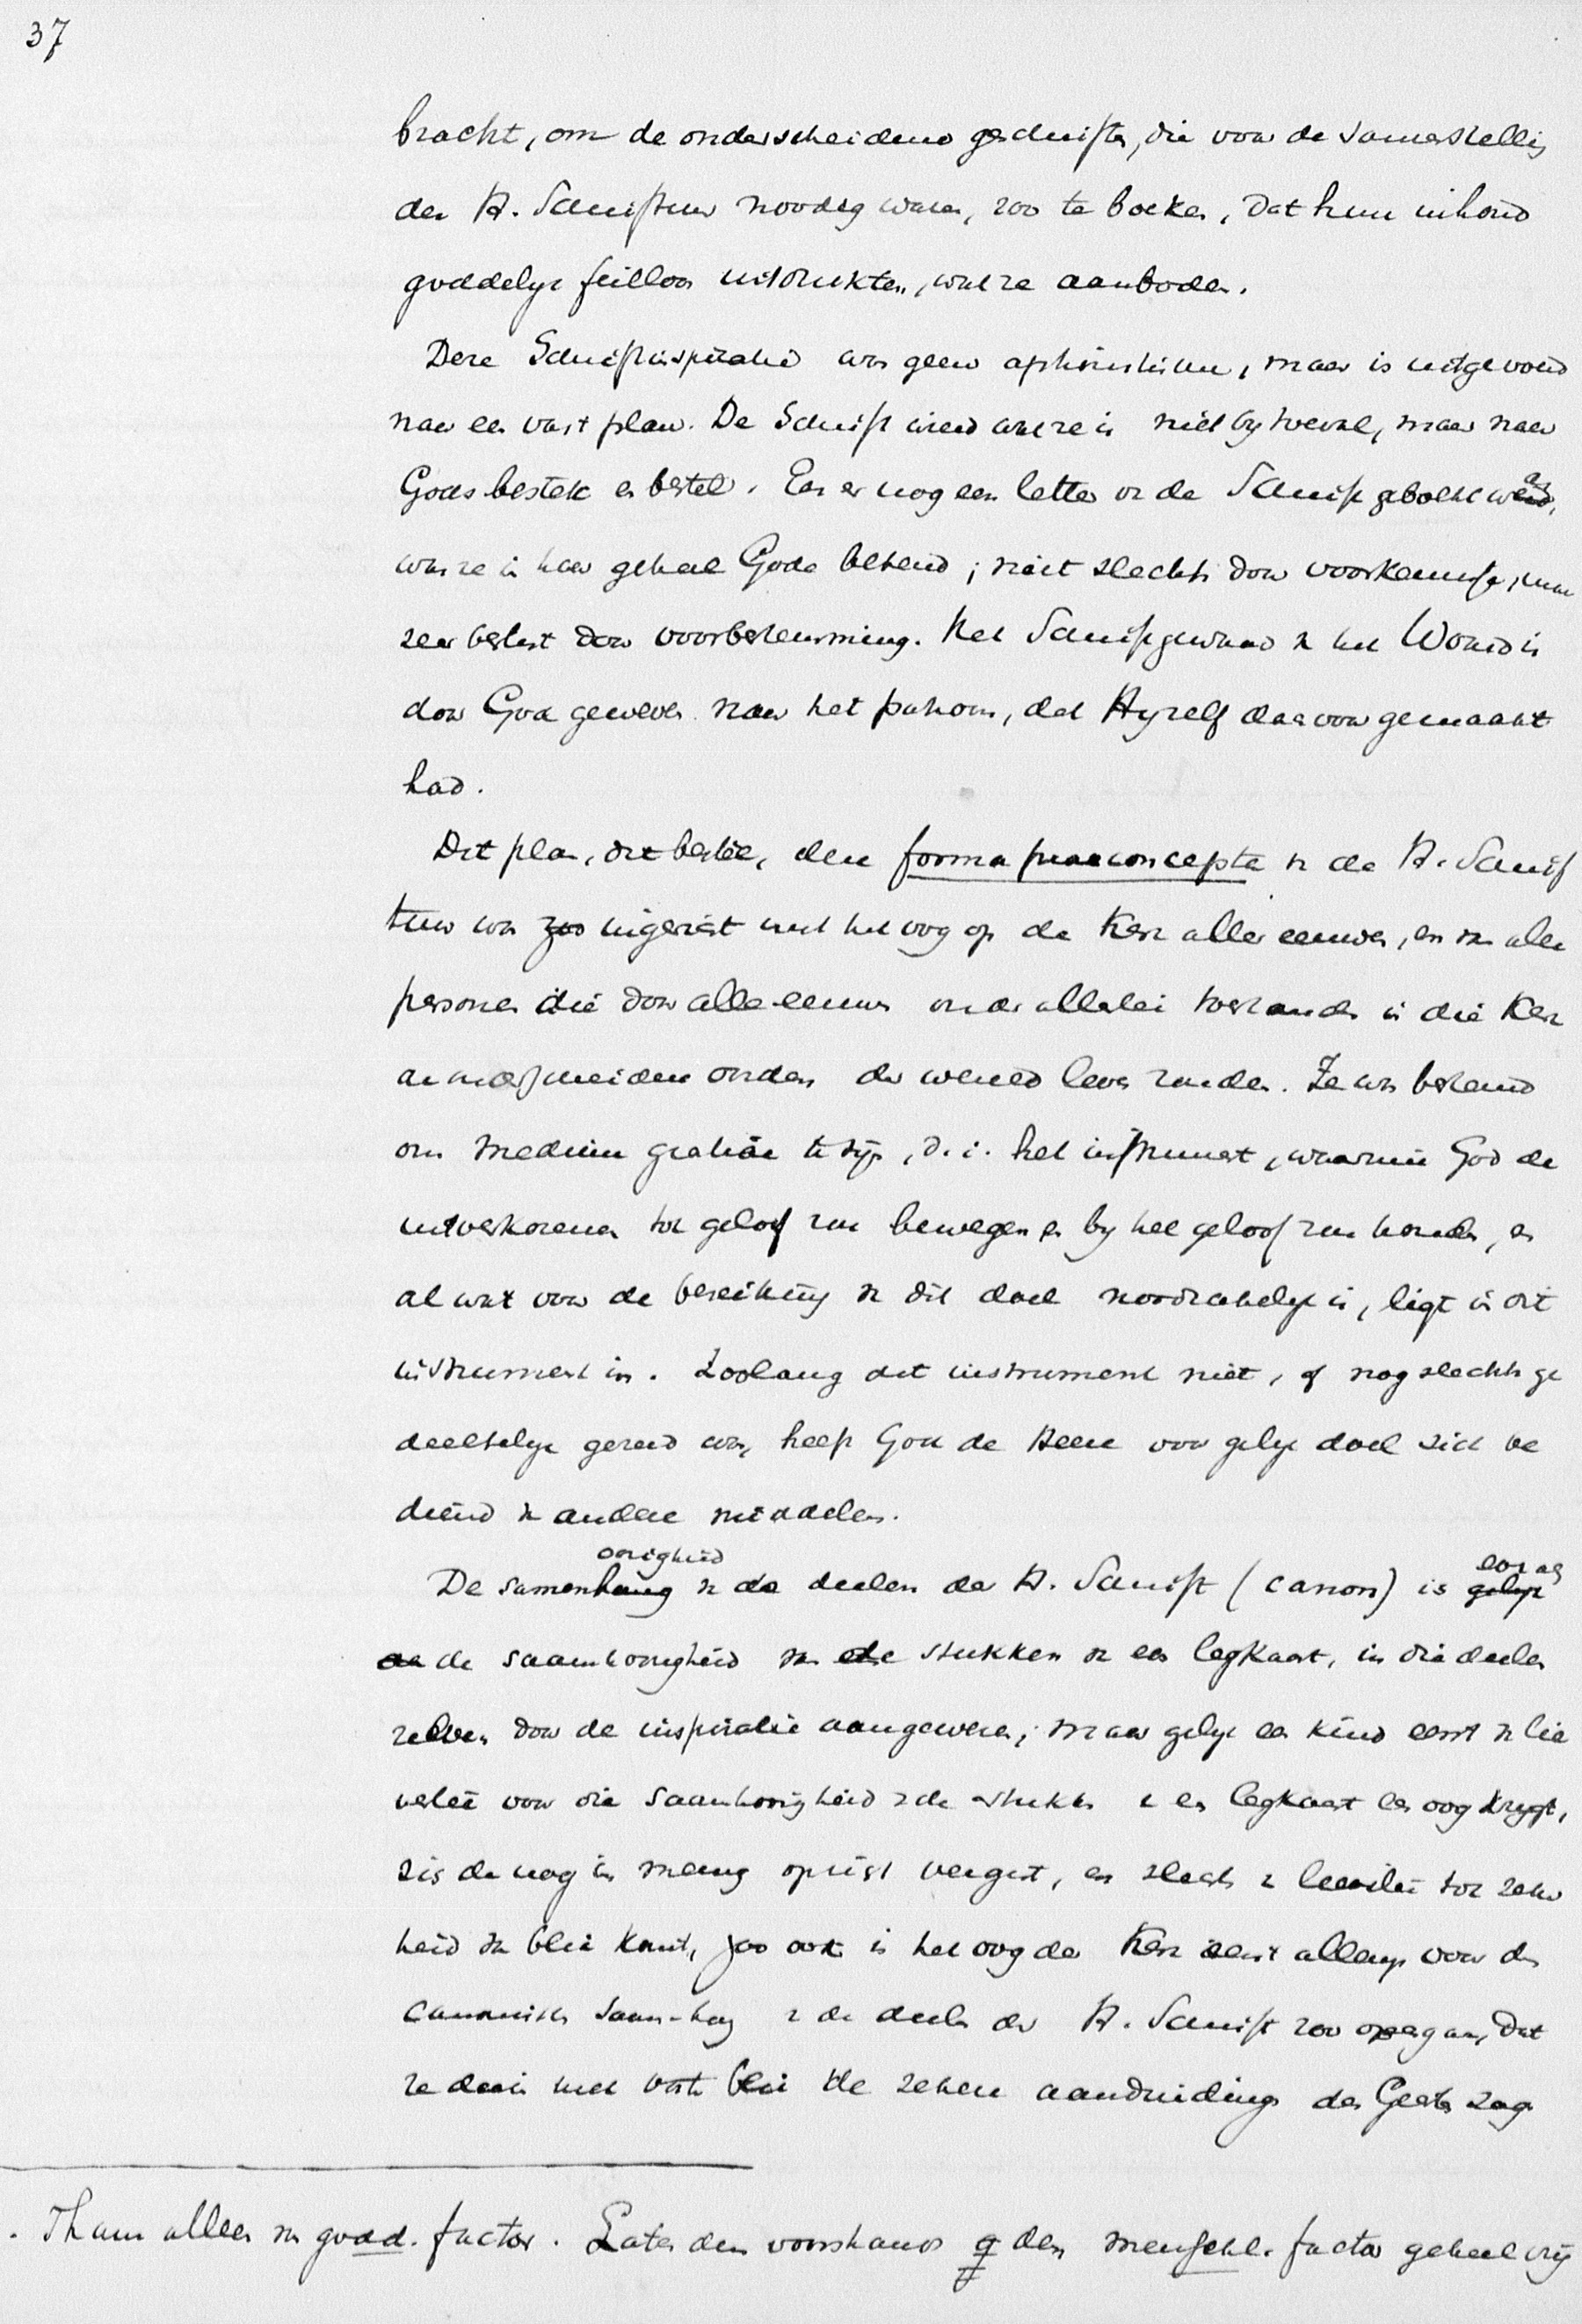 37
bracht, om de onderscheidene geschriften, die voor de samenstelling
der H. Schriftuur noodig waren, zoo te boeken, dat hun inhoud
goddelijk feilloos uitdrukten, wat ze aanboden.
Deze Schriftinspiratie was geen aphorisme, maar is uitgevoerd
naar een vast plan. De Schrift werd wat ze is niet by toeval, maar naar
Gods bestek en bestel. Eer er nog een letter v. de Schrift geboekt was,
was ze in haar geheel Gode bekend; niet slechts door voorkennisse, maar
zeer beslist door voorbestemming. Het Schriftgewaad v. het Woord is
door God geweven naar het patroon, dat Hyzelf daarvoor gemaakt
had.
Dit plan, dit bestek, deze forma praeconcepta v. de H. Schrif
tuur was zoo ingericht met het oog op de Kerk aller eeuwen, en v. alle
personen die door alle eeuwen onder allerlei toestanden in die Kerk
onderscheidene oorden der wereld leven zouden. Ze was bestemd
om medium gratiae te zyn, d.i. het instrument, waarmeê God de
uitverkorenen tot geloof zou bewegen en by het geloof zou houden, en
al wat voor de bereiking v. dit doel noodzakelyk is, ligt in dit
instrument in. Zoolang dit instrument niet, of nog slechts ge
deeltelyk gereed was, heeft God de Heere voor gelyk doel zich be
diend v. andere middelen.
De samenhoorigheid v. de deelen der H. Schrift (canon) is evenals
de saamhoorigheid van de stukken v. een legkaart, in die deelen
zelven door de inspiratie aangewezen; maar gelyk een kind eerst v. lie
verlee voor die saamhoorigheid v. de stukken v. een legkaart een oog krygt,
zich dan nog in menig opzicht vergist, en slechts v. lieverlee tot zeker
heid van blik komt, zoo ook is het oog der Kerk eerst allengs voor den
canonischen saamhang v. de deelen der H. Schrift zoo opengegaan, dat
ze daarin met vaste blik de zekere aanduiding des Geestes zag.
. Thans alleen v. godd. factor. Later den voorshands of den menschl. factor geheel vrij